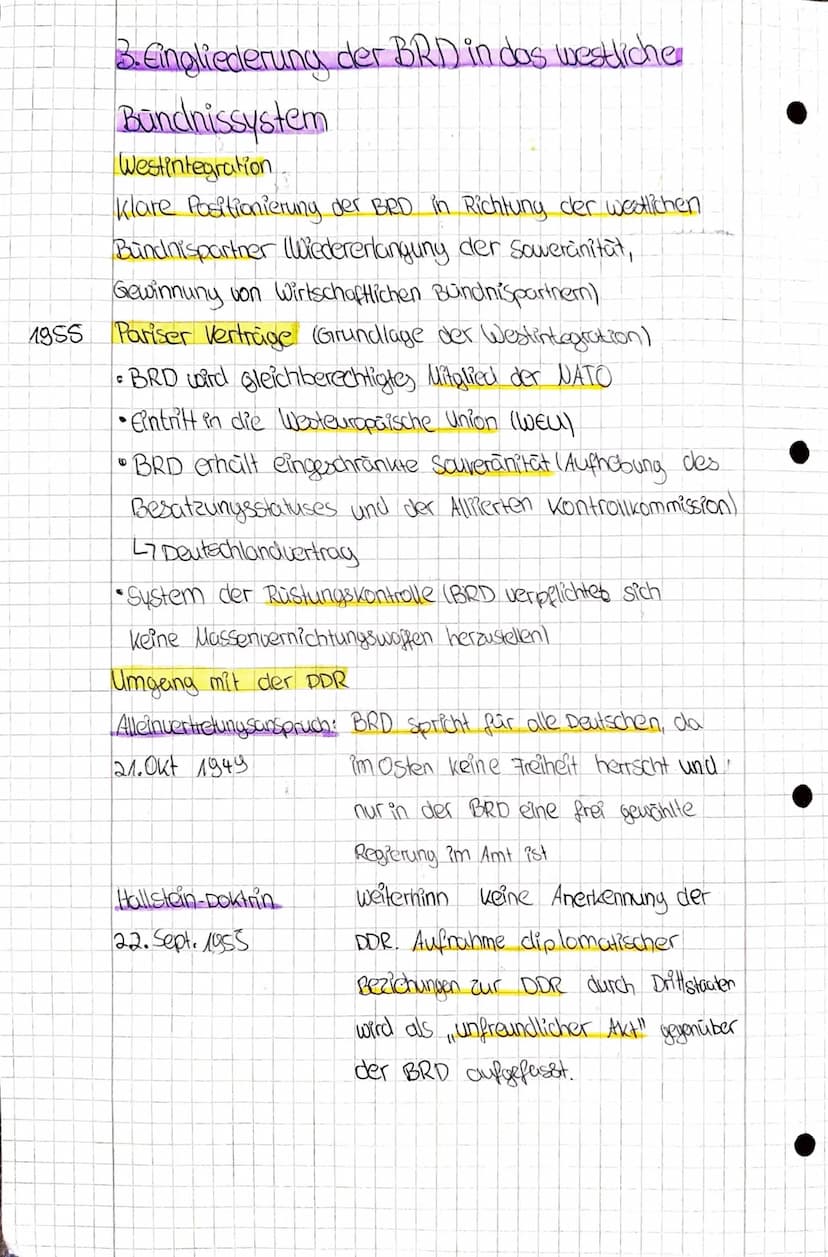 3. Eingliederung der BRD in das westliche
Bündnissystem
Westintegration
Klare Positionierung der BRD in Richtung der westlichen
Bündnispartner (Wiedererlangung der Souveränität,
Gewinnung von Wirtschaftlichen Bündnispartnern)
1955 Pariser Verträge (Grundlage der Westintegration)
• BRD wird gleichberechtigtes Mitglied der NATO
• Eintritt in die Westeuropäische Union (WEU)
• BRD erhält eingeschränkte Souveränität (Aufhebung des
Besatzungsstatuses und der Alliierten Kontrollkommission)
↳ Deutschlandvertrag
• System der Rüstungskontrolle (BRD verpflichtet sich
keine Massenvernichtungswaffen herzustellen)
Umgang mit der DDR
Alleinvertretungsanspruch: BRD spricht für alle Deutschen, da
21. Okt 1949 im Osten keine Freiheit herrscht und
nur in der BRD eine frei gewählte
Regierung im Amt ist
Hallstein-Doktrin weiterhinn keine Anerkennung der
22. Sept. 1955 DDR. Aufnahme diplomatischer
Beziehungen zur DDR durch Drittstaaten
wird als „unfreundlicher Akt" gegenüber
der BRD aufgefasst.